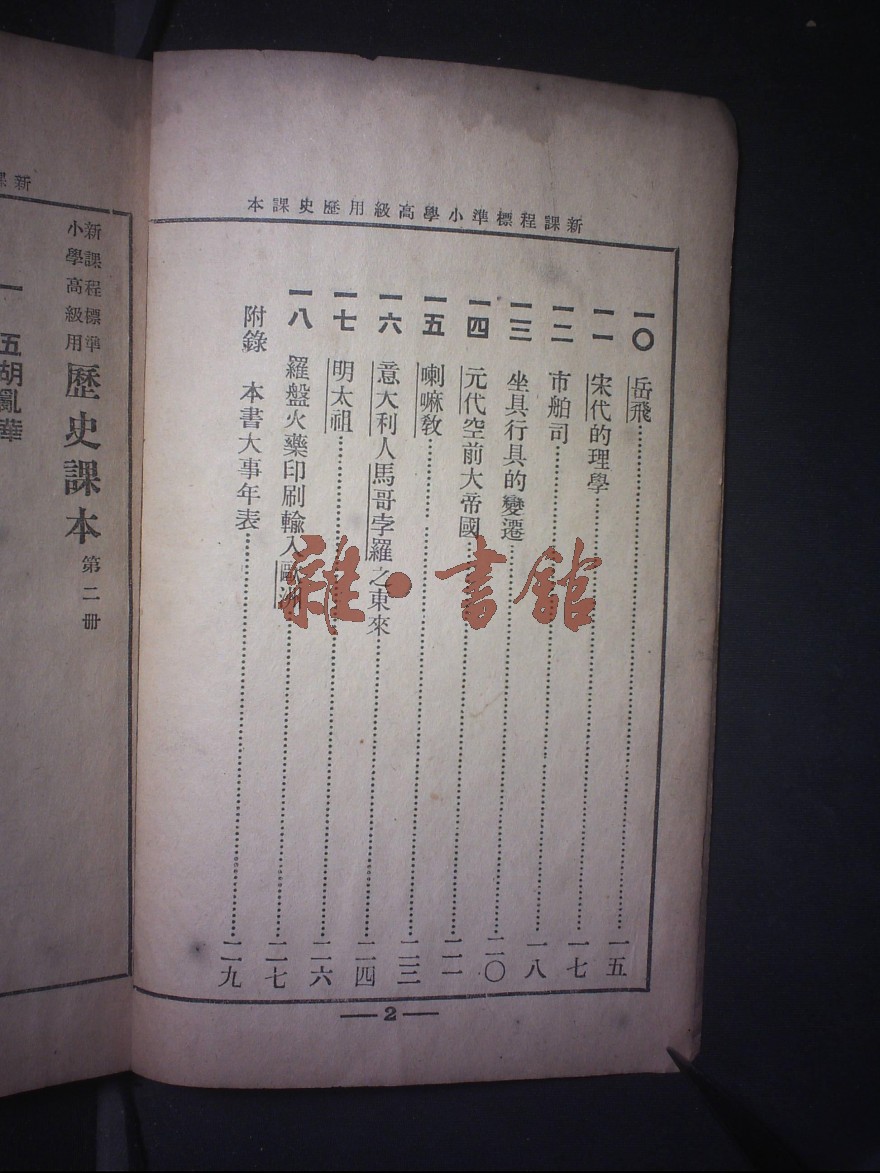 新課程標準小學高級用歷史課本
一〇 岳飛 一五
一一 宋代的理學 一七
一二 市舶司 一八
一三 坐具行具的變遷 二〇
一四 元代空前大帝國 二一
一五 喇嘛敎 二三
一六 意大利人馬哥孛羅之東來 二四
一七 明太祖 二六
一八 羅盤火藥印刷輸入歐洲 二七
附錄 本書大事年表 二九
— 2 —
新課
新課程標準
小學高級用
歷史課本 第二冊
一 五胡亂華
雜·書館